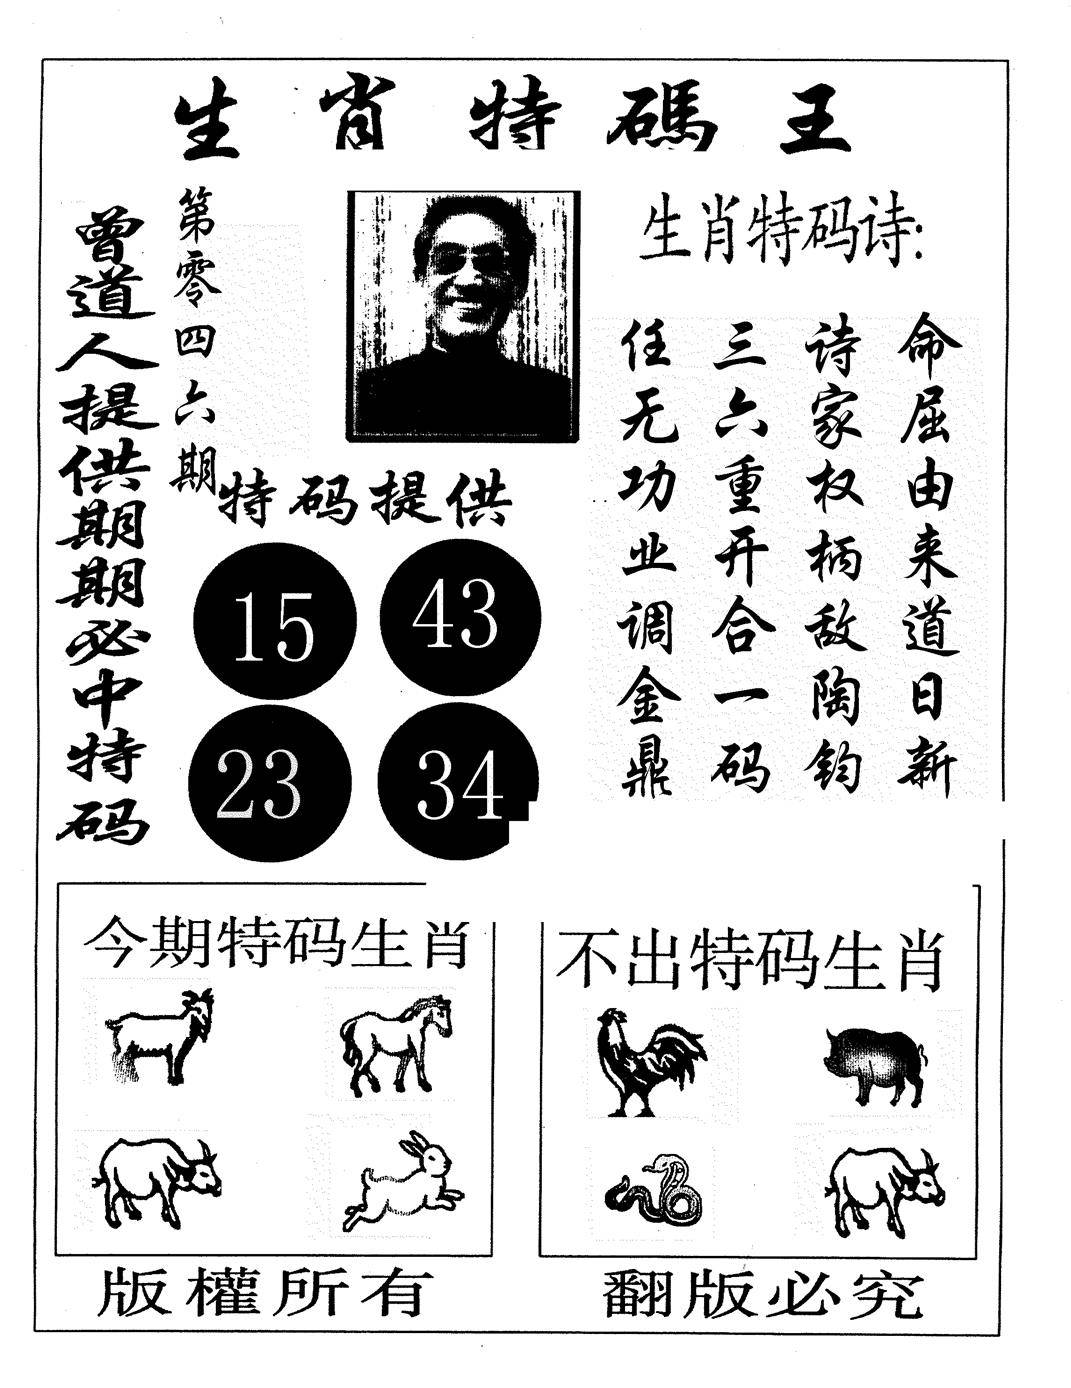 生肖特碼王
曾道人提供期期必中特码
第零四六期
生肖特码诗:
命屈由来道日新
诗家权柄敌陶钧
三六重开合一码
任无功业调金鼎
特码提供
15 43
23 34
今期特码生肖
不出特码生肖
版權所有
翻版必究